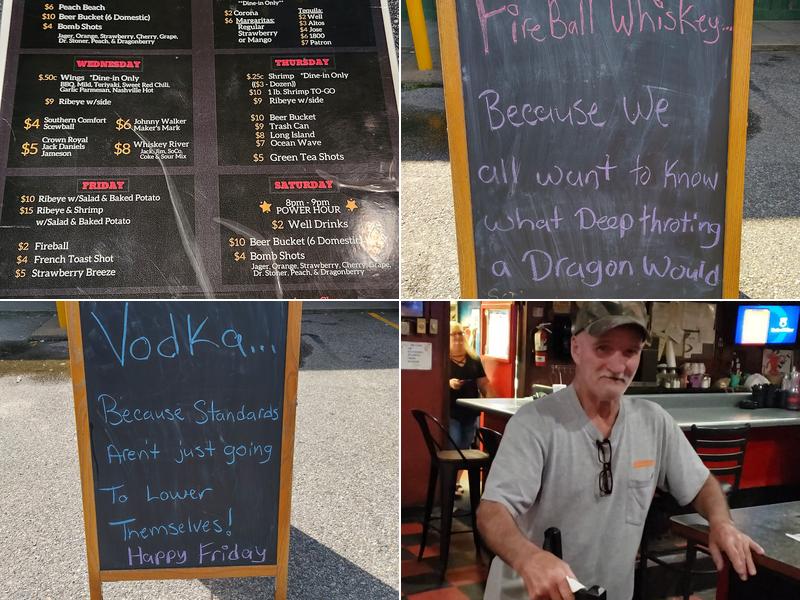 $6 Peach Beach
$10 Beer Bucket (6 Domestic)
$4 Bomb Shots
Jager, Orange, Strawberry, Cherry, Grape,
Dr. Stoner, Peach, & Dragonberry
*Dine-in Only*
$2 Corona
$6 Margaritas:
Regular
Strawberry
or Mango
Tequila:
$2 Well
$3 Altos
$4 Jose
$6 1800
$7 Patron
WEDNESDAY
$.50c Wings *Dine-in Only
BBQ, Mild, Teriyaki, Sweet Red Chili,
Garlic Parmesan, Nashville Hot
$9 Ribeye w/side
$4 Southern Comfort
Scewball
$6 Johnny Walker
Maker's Mark
$5 Crown Royal
Jack Daniels
Jameson
$8 Whiskey River
Jack, Jim, SoCo,
Coke & Sour Mix
THURSDAY
$.25c Shrimp *Dine-in Only
(($3 - Dozen))
$10 1 lb. Shrimp TO-GO
$9 Ribeye w/side
$10 Beer Bucket
$9 Trash Can
$8 Long Island
$7 Ocean Wave
$5 Green Tea Shots
FRIDAY
$10 Ribeye w/Salad & Baked Potato
$15 Ribeye & Shrimp
w/Salad & Baked Potato
$2 Fireball
$4 French Toast Shot
$5 Strawberry Breeze
SATURDAY
8pm - 9pm
POWER HOUR
$2 Well Drinks
$10 Beer Bucket (6 Domestic)
$4 Bomb Shots
Jager, Orange, Strawberry, Cherry, Grape,
Dr. Stoner, Peach, & Dragonberry
FireBall Whiskey...
Because We
all want to Know
what Deepthroting
a Dragon Would
Vodka...
Because Standards
Aren't just going
To Lower
Themselves!
Happy Friday